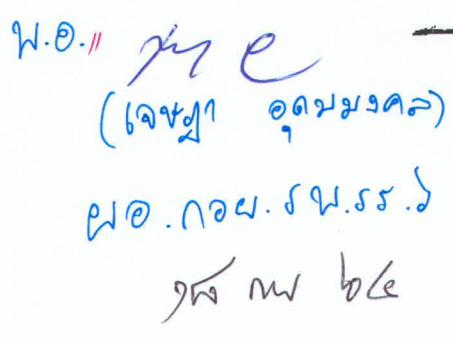 พ.อ.
(เจษฎา อุดมมงคล)
ผอ.กอย.รพ.รร.๖
๑๘ กพ ๖๔